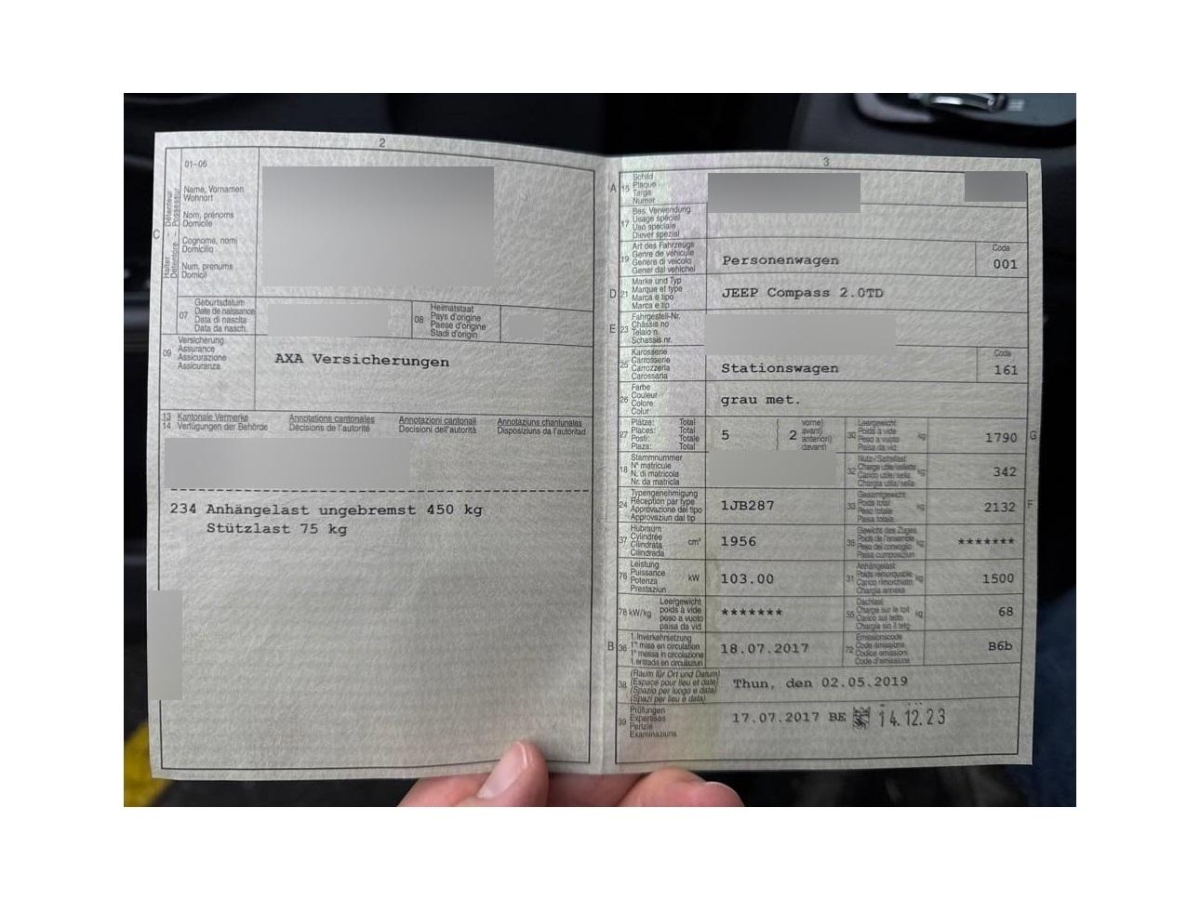 2
01-06
Name, Vornamen
Wohnort
Nom, prénoms
Domicile
Cognome, nomi
Domicilio
Num, prenums
Domicil
C
Halter – Détenteur
Detentore – Possessur
07
Geburtsdatum
Date de naissance
Data di nascita
Data da nasch.
08
Heimatstaat
Pays d'origine
Paese d'origine
Stadi d'origin
09
Versicherung
Assurance
Assicurazione
Assicuranza
AXA Versicherungen
13 Kantonale Vermerke Annotations cantonales Annotazioni cantonali Annotaziuns chantunales
14 Verfügungen der Behörde Décisions de l'autorité Decisioni dell'autorità Disposiziuns da l'autoritad
234 Anhängelast ungebremst 450 kg
Stützlast 75 kg
3
A 15
Schild
Plaque
Targa
Numer
17
Bes. Verwendung
Usage spécial
Uso speciale
Diever spezial
19
Art des Fahrzeugs
Genre de véhicule
Genere di veicolo
Gener dal vehichel
Personenwagen
Code
001
D 21
Marke und Typ
Marque et type
Marca e tipo
Marca e tip
JEEP Compass 2.0TD
E 23
Fahrgestell-Nr.
Châssis no
Telaio n.
Schassis nr.
25
Karosserie
Carrosserie
Carrozzeria
Carossaria
Stationswagen
Code
161
26
Farbe
Couleur
Colore
Colur
grau met.
27
Plätze: Total
Places: Total
Posti: Totale
Plazs: Total
5
2
vorne)
avant)
anteriori)
davant)
30
Leergewicht
Poids à vide
Peso a vuoto
Paisa da vid
kg
1790
G
18
Stammnummer
N° matricule
N. di matricola
Nr. da matricla
32
Nutz-/Sattellast
Charge utile/sellette
Carico utile/sella
Chargia utila/sella
kg
342
24
Typengenehmigung
Réception par type
Approvazione del tipo
Approvaziun dal tip
1JB287
33
Gesamtgewicht
Poids total
Peso totale
Paisa totala
kg
2132
F
37
Hubraum
Cylindrée
Cilindrata
Cilindrada
cm³
1956
35
Gewicht des Zuges
Poids de l'ensemble
Peso del convoglio
Paisa cumposiziun
kg
*******
76
Leistung
Puissance
Potenza
Prestaziun
kW
103.00
31
Anhängelast
Poids remorquable
Carico rimorchiato
Chargia annexa
kg
1500
78 kW/kg
Leergewicht
poids à vide
peso a vuoto
paisa da vid
*******
55
Dachlast
Charge sur le toit
Carico sul tetto
Chargia sin il tetg
kg
68
B 36
1. Inverkehrsetzung
1re mise en circulation
1a messa in circolazione
1. entrada en circulaziun
18.07.2017
72
Emissionscode
Code émissions
Codice emissioni
Code d'emissiuns
B6b
38
(Raum für Ort und Datum)
(Espace pour lieu et date)
(Spazio per luogo e data)
(Spazi per lieu e data)
Thun, den 02.05.2019
39
Prüfungen
Expertises
Perizie
Examinaziuns
17.07.2017 BE 14.12.23